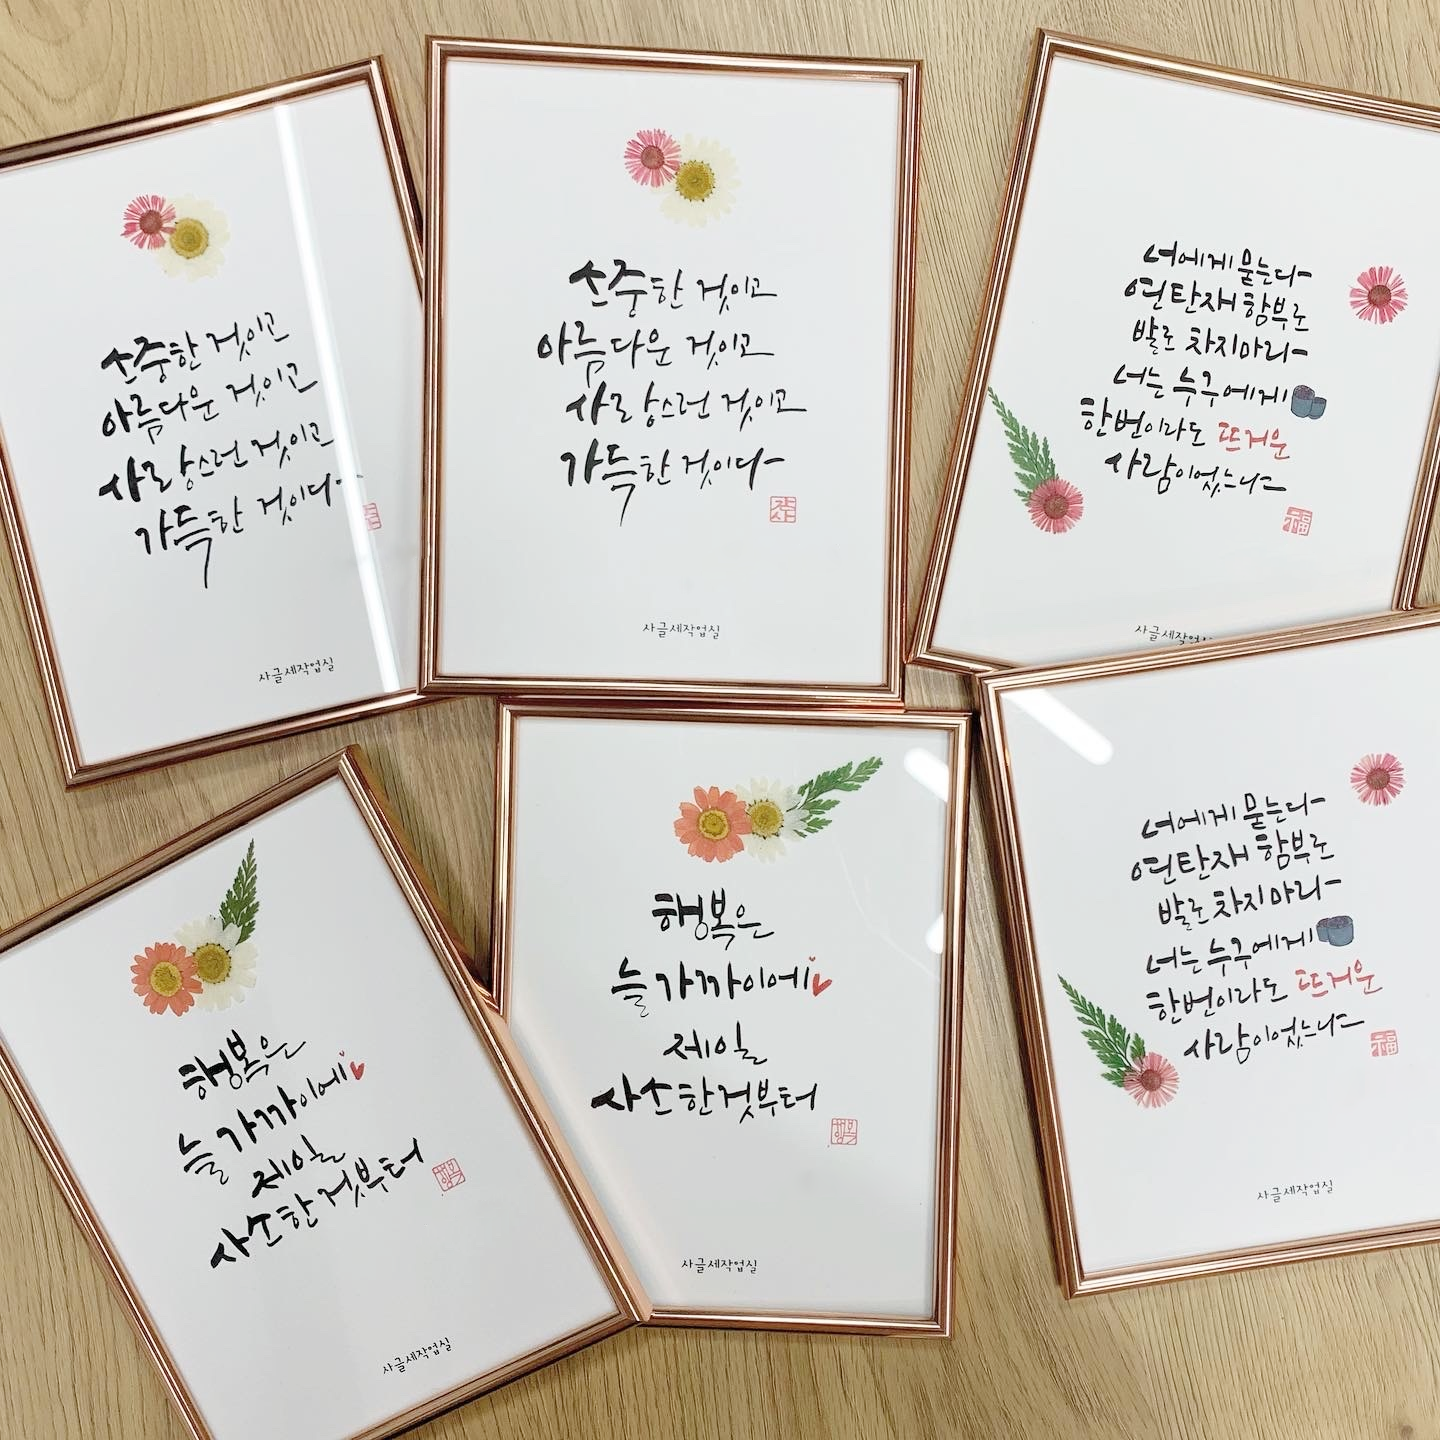 소중한 것이고
아름다운 것이고
사랑스런 것이고
가득한 것이다
사글세작업실
소중한 것이고
아름다운 것이고
사랑스런 것이고
가득한 것이다
사글세작업실
너에게 묻는다
연탄재 함부로
발로 차지마라
너는 누구에게
한번이라도 뜨거운
사람이었느냐
福
사글세작업실
행복은
늘 가까이에
제일
사소한것부터
행복
사글세작업실
행복은
늘 가까이에
제일
사소한것부터
행복
사글세작업실
너에게 묻는다
연탄재 함부로
발로 차지마라
너는 누구에게
한번이라도 뜨거운
사람이었느냐
福
사글세작업실